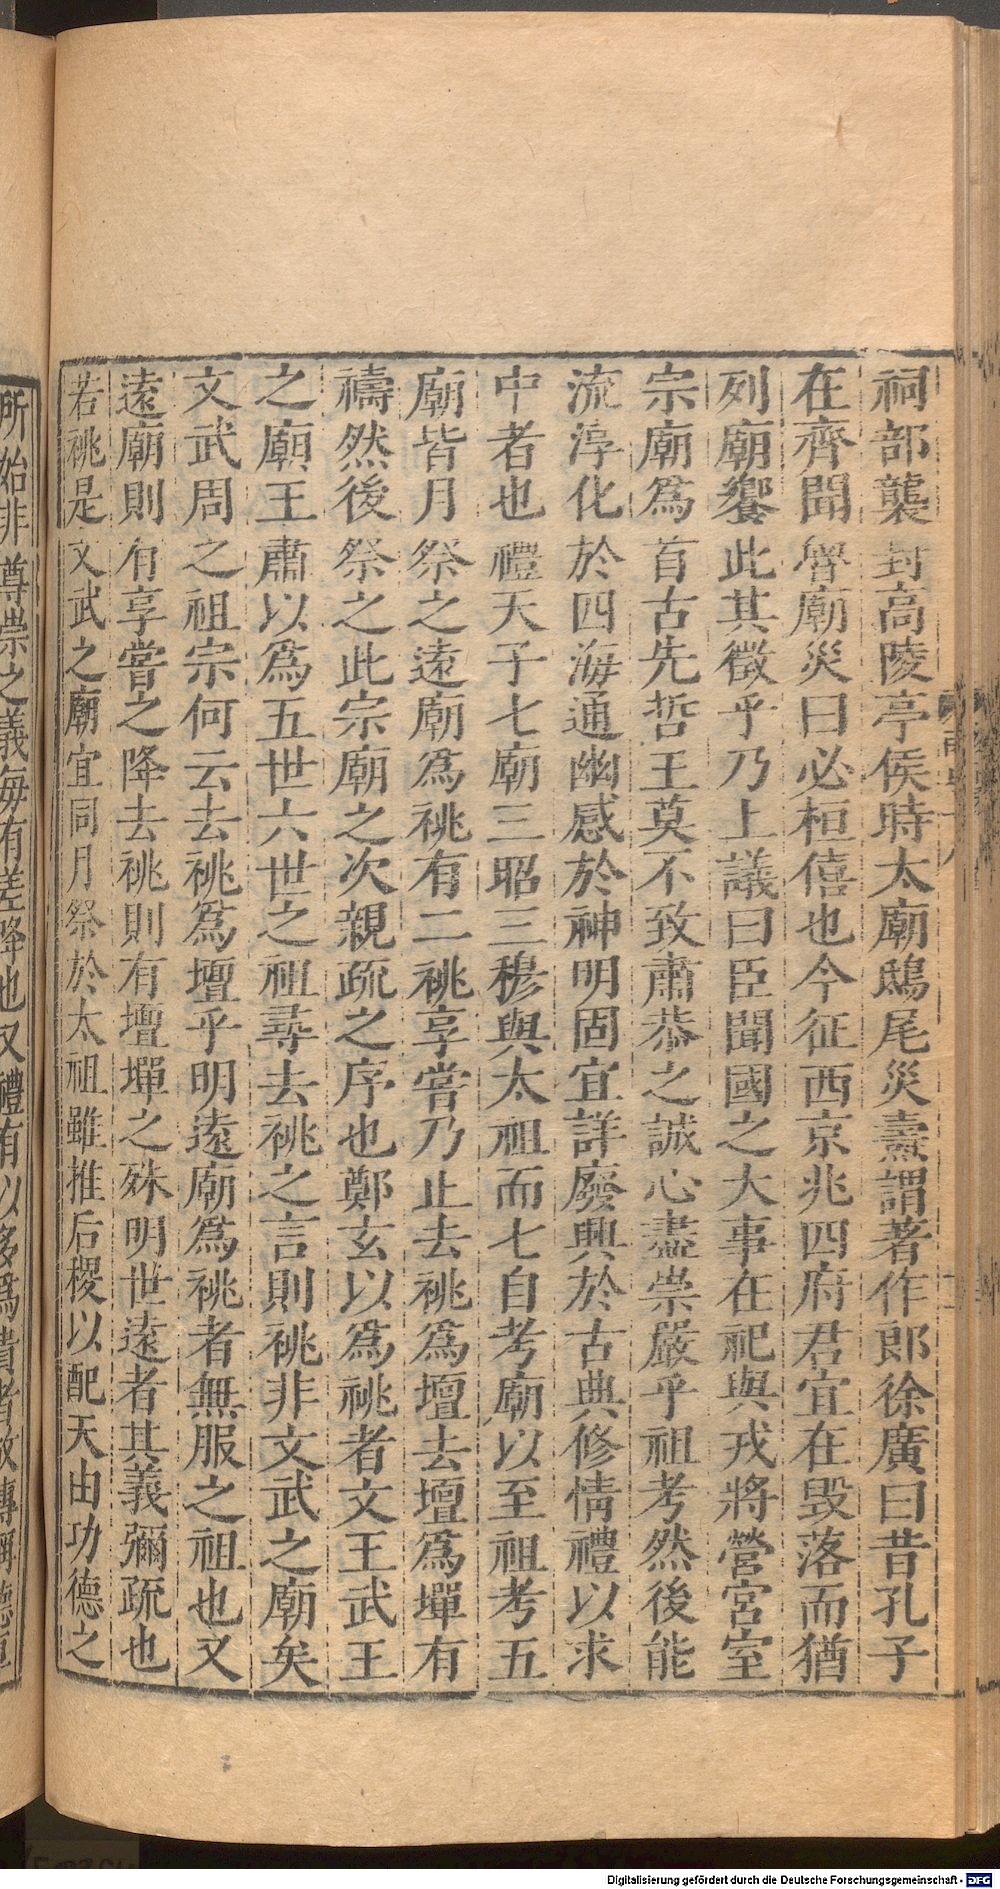 祠部襲封高陵亭侯時太廟鴟尾災燾謂著作郎徐廣曰昔孔子
在齊聞魯廟災曰必桓僖也今征西京兆四府君宜在毀落而猶
列廟饗此其徵乎乃上議曰臣聞國之大事在祀與戎將營宮室
宗廟爲首古先哲王莫不致肅恭之誠心盡崇嚴乎祖考然後能
流淳化於四海通幽感於神明固宜詳廢興於古典修情禮以求
中者也禮天子七廟三昭三穆與太祖而七自考廟以至祖考五
廟皆月祭之遠廟爲祧有二祧享嘗乃止去祧爲壇去壇爲墠有
禱然後祭之此宗廟之次親疏之序也鄭玄以爲祧者文王武王
之廟王肅以爲五世六世之祖尋去祧之言則祧非文武之廟矣
文武周之祖宗何云去祧爲壇乎明遠廟爲祧者無服之祖也又
遠廟則有享嘗之降去祧則有壇墠之殊明世遠者其義彌疏也
若祧是文武之廟宜同月祭於太祖雖推后稷以配天由功德之
所始非尊崇之義每有差降也又禮有以多爲貴者故傳稱德
Digitalisierung gefördert durch die Deutsche Forschungsgemeinschaft - DFG